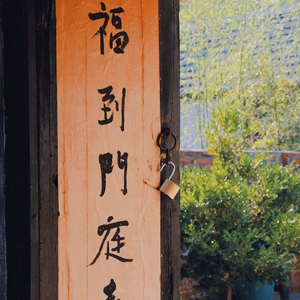 福到門庭